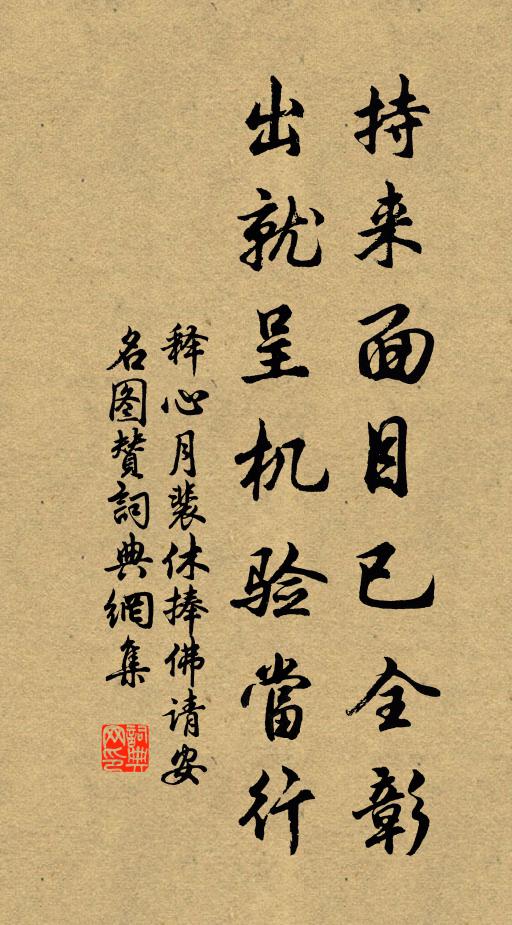 持来面目已全彰
出就呈机验當行
释心月裴休捧佛请安
名图赞詞典網集
詞典
网印